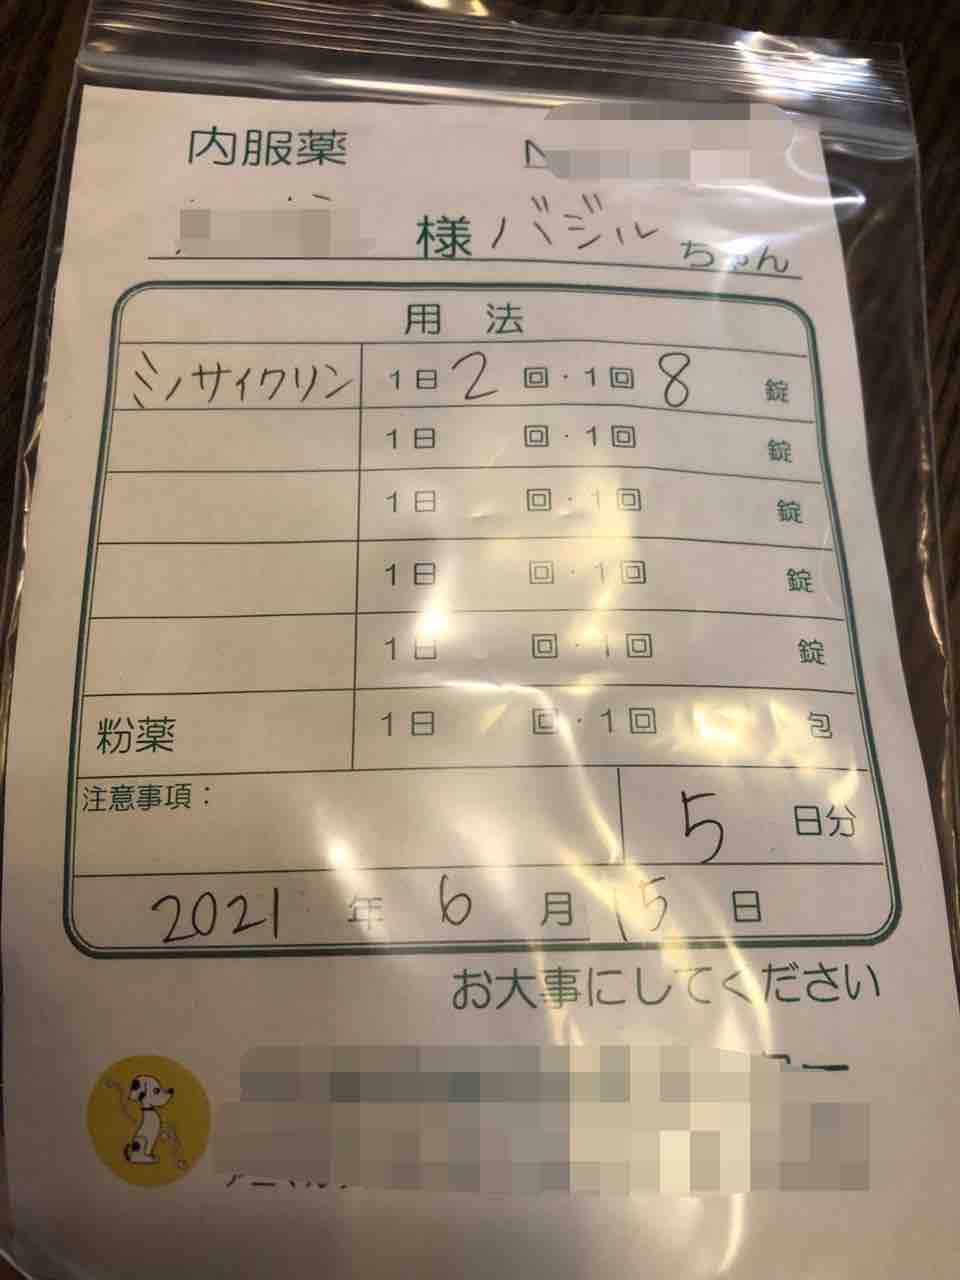 内服薬
様 バジル ちゃん
用 法
ミノサイクリン 1日 2 回・1回 8 錠
1日 回・1回 錠
1日 回・1回 錠
1日 回・1回 錠
1日 回・1回 錠
粉薬 1日 回・1回 包
注意事項：
5 日分
2021 年 6 月 15 日
お大事にしてください